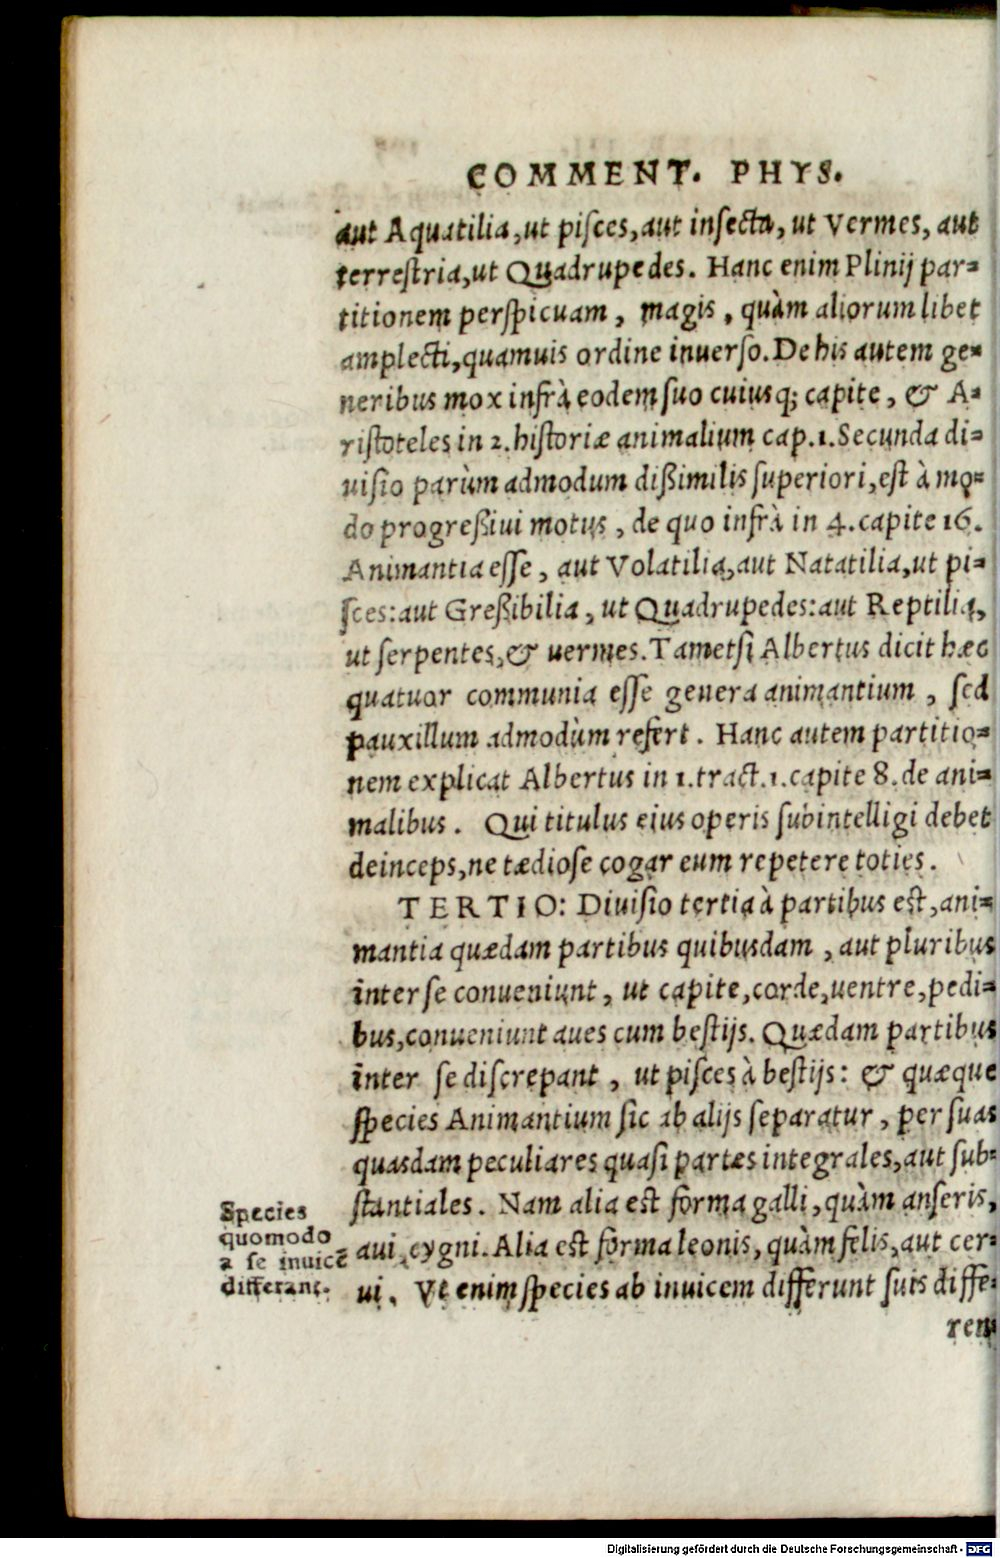 COMMENT. PHYS.
aut Aquatilia, ut piſces, aut inſecta, ut Vermes, aut
terreſtria, ut Quadrupedes. Hanc enim Plinij par-
titionem perſpicuam, magis, quàm aliorum libet
amplecti, quamuis ordine inuerſo. De his autem ge-
neribus mox infrà eodem ſuo cuiusq; capite, & A-
riſtoteles in 2. hiſtoriæ animalium cap. 1. Secunda di-
uiſio parùm admodum dißimilis ſuperiori, eſt à mo-
do progreßiui motus, de quo infrà in 4. capite 16.
Animantia eſſe, aut Volatilia, aut Natatilia, ut pi-
ſces: aut Greßibilia, ut Quadrupedes: aut Reptilia,
ut ſerpentes, & uermes. Tametſi Albertus dicit hæc
quatuor communia eſſe genera animantium, ſed
pauxillum admodùm refert. Hanc autem partitio-
nem explicat Albertus in 1. tract. 1. capite 8. de ani-
malibus. Qui titulus eius operis ſubintelligi debet
deinceps, ne tædioſe cogar eum repetere toties.
TERTIO: Diuiſio tertia à partibus eſt, ani-
mantia quædam partibus quibusdam, aut pluribus
inter ſe conueniunt, ut capite, corde, uentre, pedi-
bus, conueniunt aues cum beſtijs. Quædam partibus
inter ſe diſcrepant, ut piſces à beſtijs: & quæque
ſpecies Animantium ſic ab alijs ſeparatur, per ſuas
quasdam peculiares quaſi partes integrales, aut ſub-
ſtantiales. Nam alia eſt forma galli, quàm anſeris,
aui, cygni. Alia eſt forma leonis, quàm felis, aut cer-
ui. Vt enim ſpecies ab inuicem differunt ſuis diffe-
ren
Species
quomodo
a se inuicē
differant.
Digitalisierung gefördert durch die Deutsche Forschungsgemeinschaft - DFG